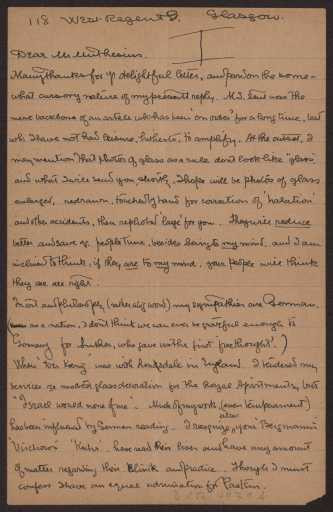 118 West Regent St, Glasgow.
I
Dear Mr Muthesius.
Many thanks for yr delightful letter, and pardon the some-
what cursory nature of my present reply. MS. sent was the
mere backbone of an article wh. has been 'on order' for a long time, but
wh. I have not had leisure, hitherto, to amplify. At the outset, I
may mention that photos of glass as a rule don't look like 'glass'
and what I will send you, shortly, I hope will be photos of glass
enlarged, redrawn, touched by hand for correction of 'halation'
and other accidents, then rephotod large for you. They will reduce
better and save yr people time, besides being to my mind, and I am
inclined to think, if they are to my mind, your people will think
they are all right.
In art and philosophy (rather big word) my sympathies are German.
as a nation, I don't think we can ever be grateful enough to
Germany for Luther, who gave us the first 'free thought'.)
When 'the King' was with Lonsdale in England I tendered my
services re modern glass decoration for the Royal Apartments, but
"Israel would none of me". Much of my work (even temperament)
has been influenced by German reading. I recognise, also, your Bergmanns
Virchows Kochs. have read their lives and have any amount
of matter regarding their Klinik and practice. Though I must
confess I have an equal admiration for Pasteur.